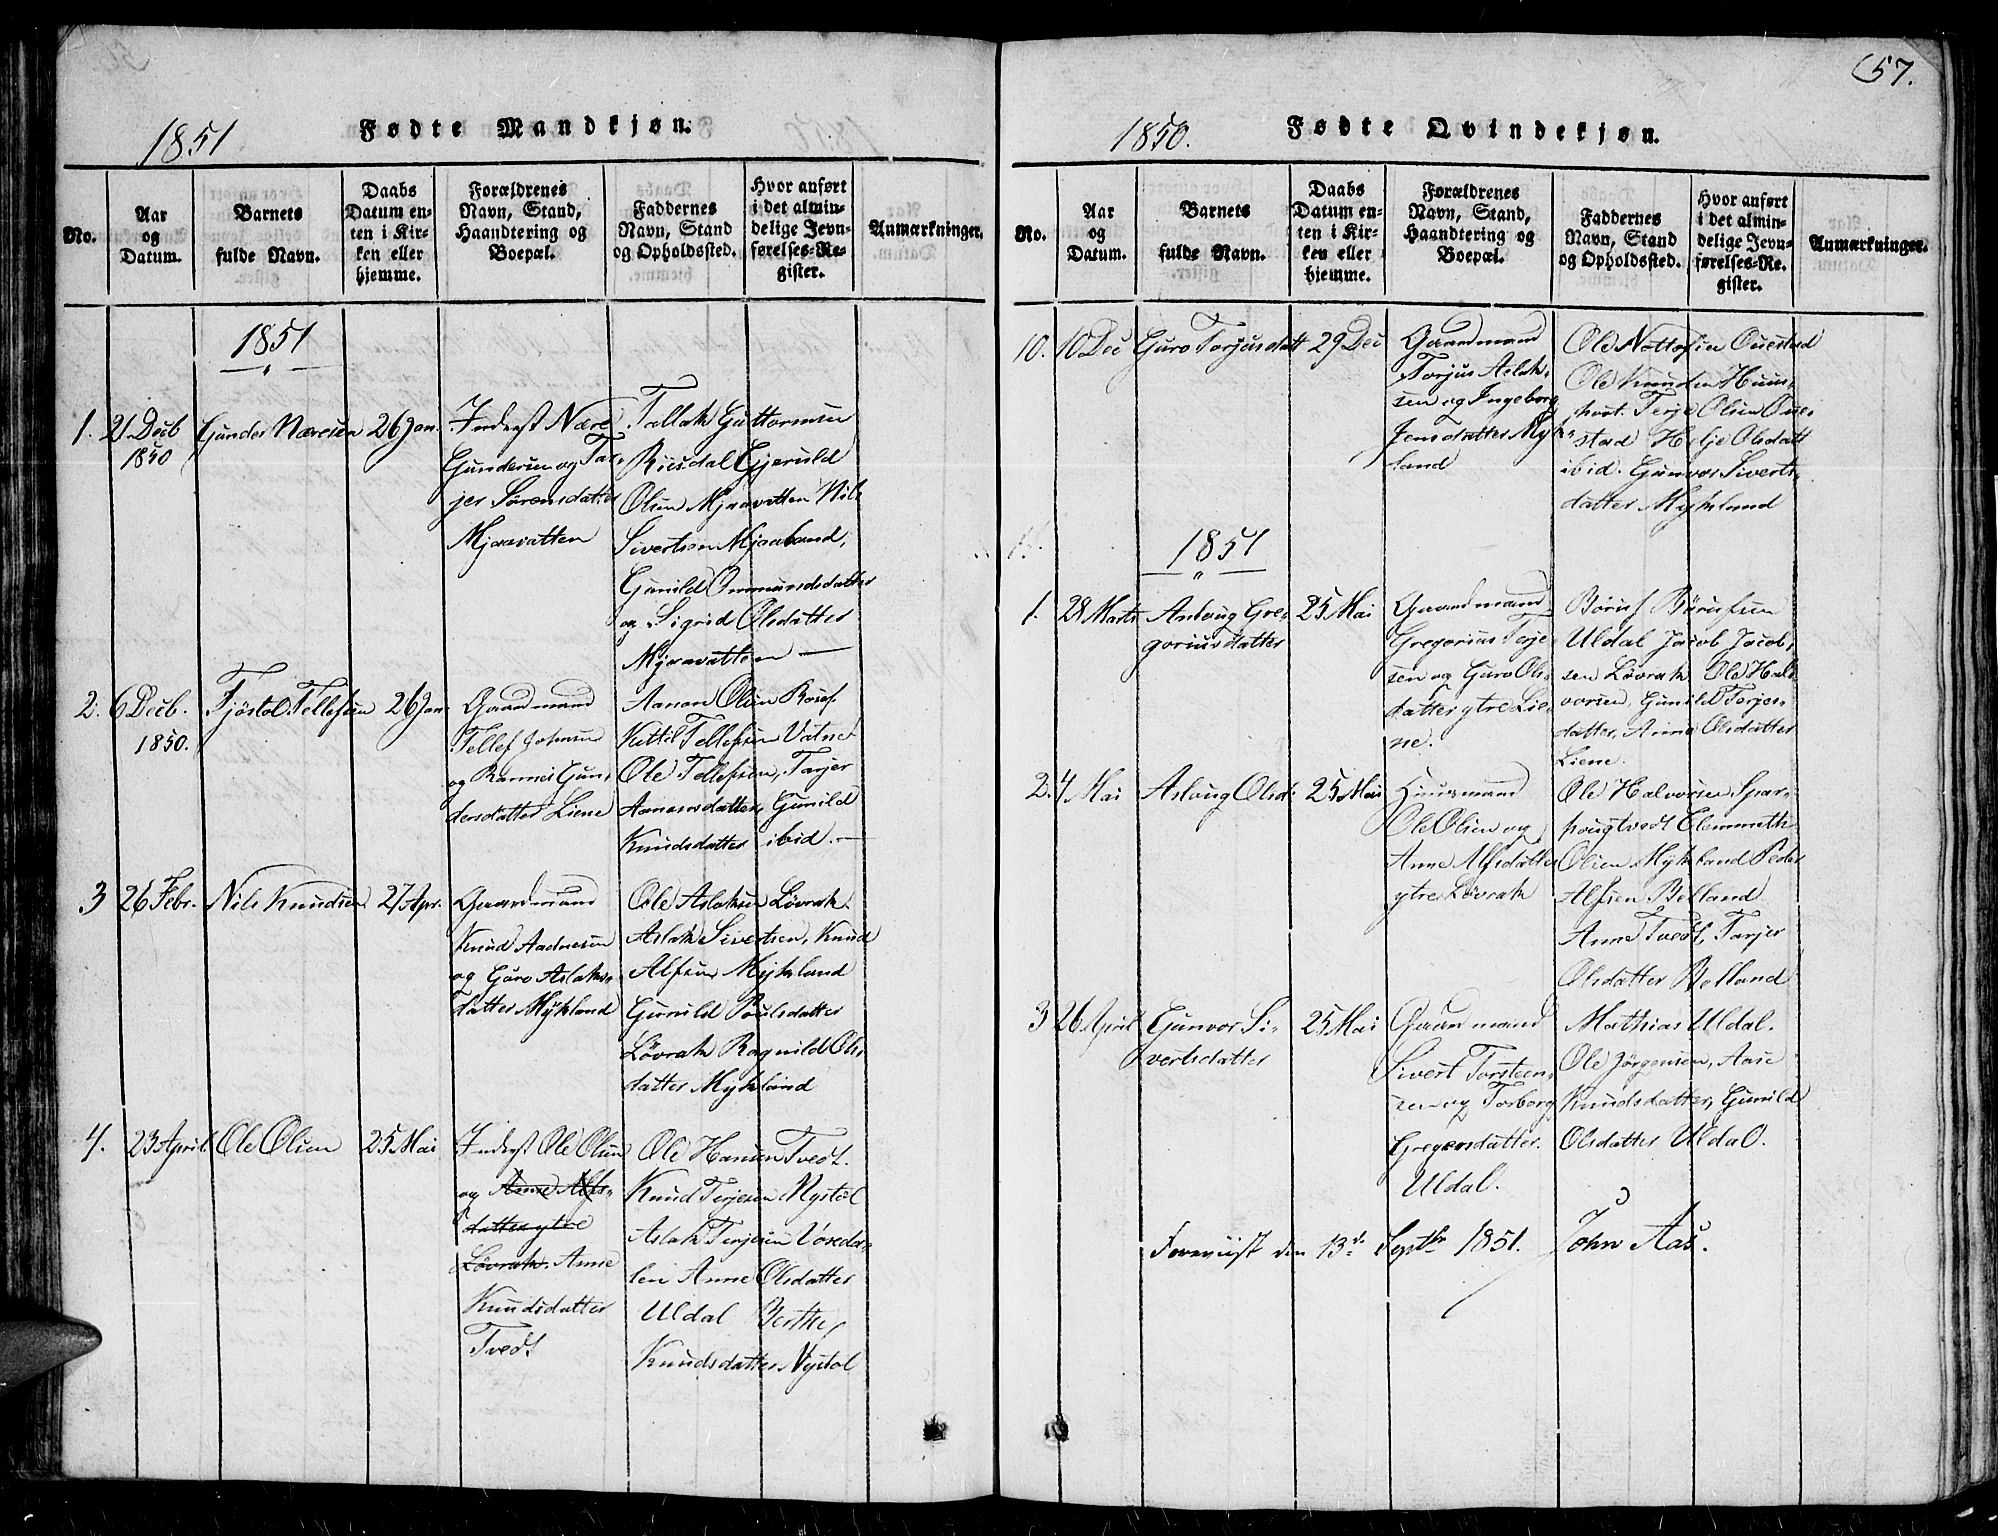 57.
1851
Fødte Mandkjøn.
No.
Aar og Datum.
Barnets fulde Navn.
Daabs Datum enten i Kirken eller hjemme.
Forældrenes Navn, Stand, Haandtering og Boepæl.
Faddernes Navn, Stand og Opholdssted.
Hvor anført i det almindelige Jevnførelses-Register.
Anmærkninger.
1851
1. 21 Decb 1850
Gunder Næresen
26 Jan.
Inderst Nære
Gundersen og Tar-
jer Sørensdatter
Mjaavatten
Tallak Guttormsen
Risdal Gjeruld
Olsen Mjaavatten Nils
Sivertsen Mjaaland,
Gunild Ommundsdatter
og Sigrid Olsdatter
Mjaavatten —
2. 6 Decb. 1850.
Fjøstol Tellefsen
26 Jan.
Gaardmand
Tellef Johnsen
og Rannei Gun-
dersdatter Liene
Aanon Olsen
Kittil Tellefsen Vatne
Ole Tellefsen, Tarjer
Aanonsdatter, Gunild
Knudsdatter ibid. —
3 26 Febr.
Nils Knudsen
27 Apr.
Gaardmand
Knud Aadnesen
og Guro Aslaks-
datter Mykland
Ole Aslaksen Løvrak
Aslak Sivertsen, Knud
Alfsen Mykland
Gunild Poulsdatter
Løvrak Ragnild Ols-
datter Mykland
4. 23 April
Ole Olsen
25 Mai
Inderst Ole Olsen
og Anne Alfs-
datter ytre
Løvrak. Anne
Knudsdatter
Tvedt
Ole Hansen Tvedt.
Knud Terjesen Nystøl
Aslak Terjesen Voseda-
len Anne Olsdatter
Uldal Berthe
Knudsdatter Nystøl
1850.
Fødte Qvindekjøn.
No.
Aar og Datum.
Barnets fulde Navn.
Daabs Datum enten i Kirken eller hjemme.
Forældrenes Navn, Stand, Haandtering og Boepæl.
Faddernes Navn, Stand og Opholdssted.
Hvor anført i det almindelige Jevnførelses-Register.
Anmærkninger.
10. 10 Dec
Guro Torjusdatt
29 Dec
Gaardmand
Torjus Aslak-
sen og Ingeborg
Jensdatter Myk-
land
Ole Nottosen Ouestad
Ole Knudsen Huus-
hovt. Terje Olsen Oue-
stad Helje Olsdatt
ibid. Gunvor Siverts-
datter Mykland
1851
1. 28 Marts
Aslaug Gre-
goriusdatter
25 Mai
Gaardmand
Gregorius Terje-
sen og Guro Ols-
datter ytre Lie-
ne.
Børuf Børufsen
Uldal Jacob Jacob-
sen Løvrak Ole Hal-
vorsen, Gunild Terjes-
datter, Anne Olsdatter
Liene.
2. 4 Mai
Aslaug Olsd:
25 Mai
Huusmand
Ole Olsen og
Anne Alfsdatter
ytre Løvrak
Ole Halvorsen Spar-
hougtvedt Clemmeth
Olsen Mykland Peder
Alfsen Belland
Anne Tvedt, Tarjer
Olsdatter Belland
3 26 April
Gunvor Si-
vertsdatter
25 Mai
Gaardmand
Sivert Torsteen-
sen og Torborg
Gregersdatter.
Uldal.
Mathias Uldal.
Ole Jørgensen, Aase
Knudsdatter, Gunild
Olsdatter Uldal.
Foreviist den 13de Septbr 1851. John Aas.